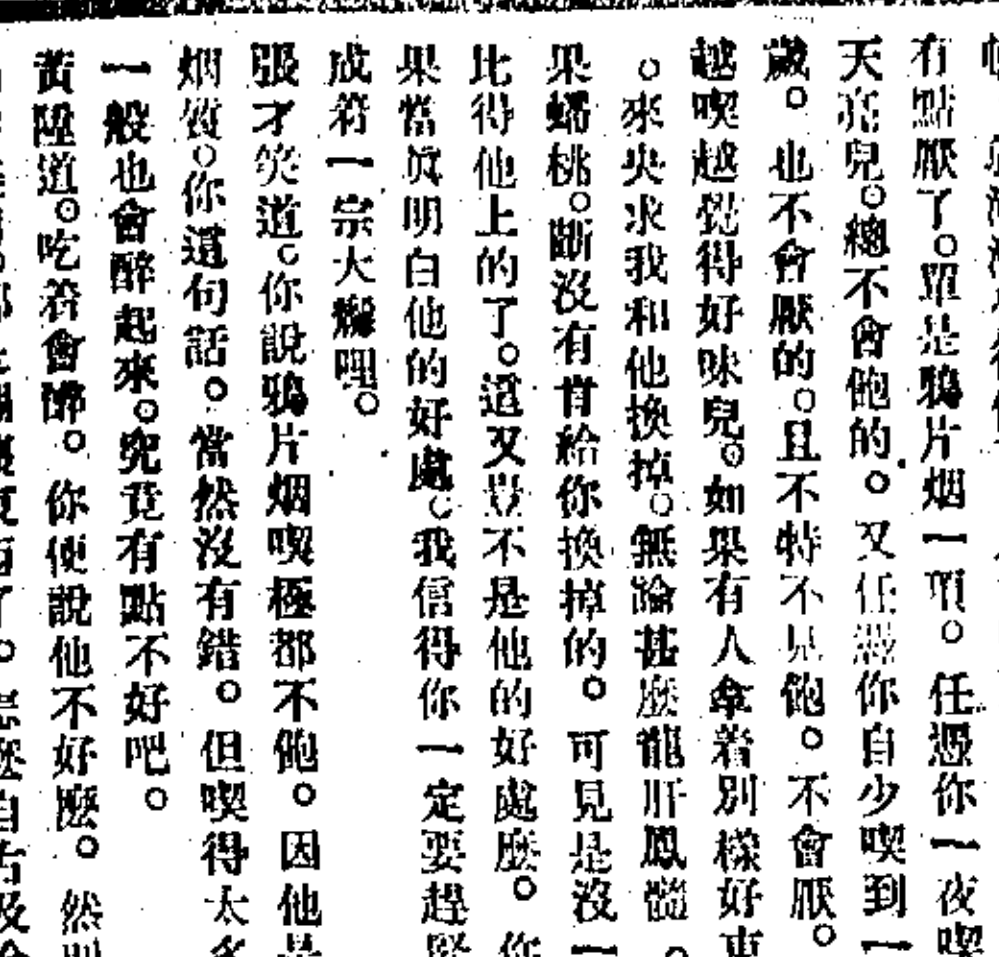 有點厭了。單是鴉片烟一項。任憑你一夜喫
天亮兒。總不會飽的。又任憑你自少喫到一
歲。也不會厭的。且不特不見飽。不會厭。
越喫越覺得好味兒。如果有人拿着別樣好東
。來央求我和他換掉。無論甚麼龍肝鳳髓。
果蟠桃。斷沒有肯給你換掉的。可見是沒一
比得他上的了。這又豈不是他的好處麼。你
果當眞明白他的好處。我信得你一定要趕緊
成着一宗大癮哩。
張才笑道。你說鴉片烟喫極都不飽。因他是
烟質。你這句話。當然沒有錯。但喫得太多
一般也會醉起來。究竟有點不好吧。
黃陞道。吃着會醉。你便說他不好麼。然則